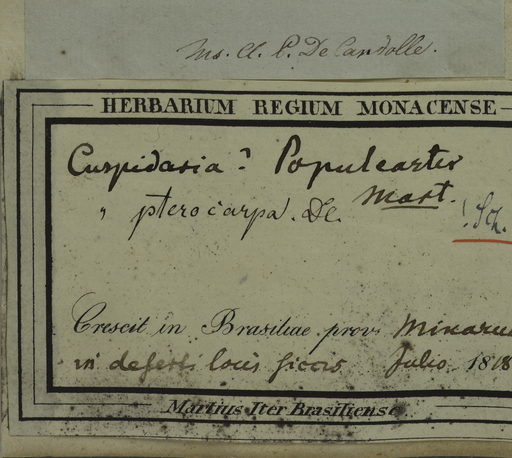 Ms. Cl. P. De Candolle.
HERBARIUM REGIUM MONACENSE
Cuspidaria? Populcarter
" pterocarpa. DC. Mart.
! Sch.
Crescit in Brasiliae prov. Minarum
in desertis locis siccis Julio 1818
Martius Iter Brasiliense.